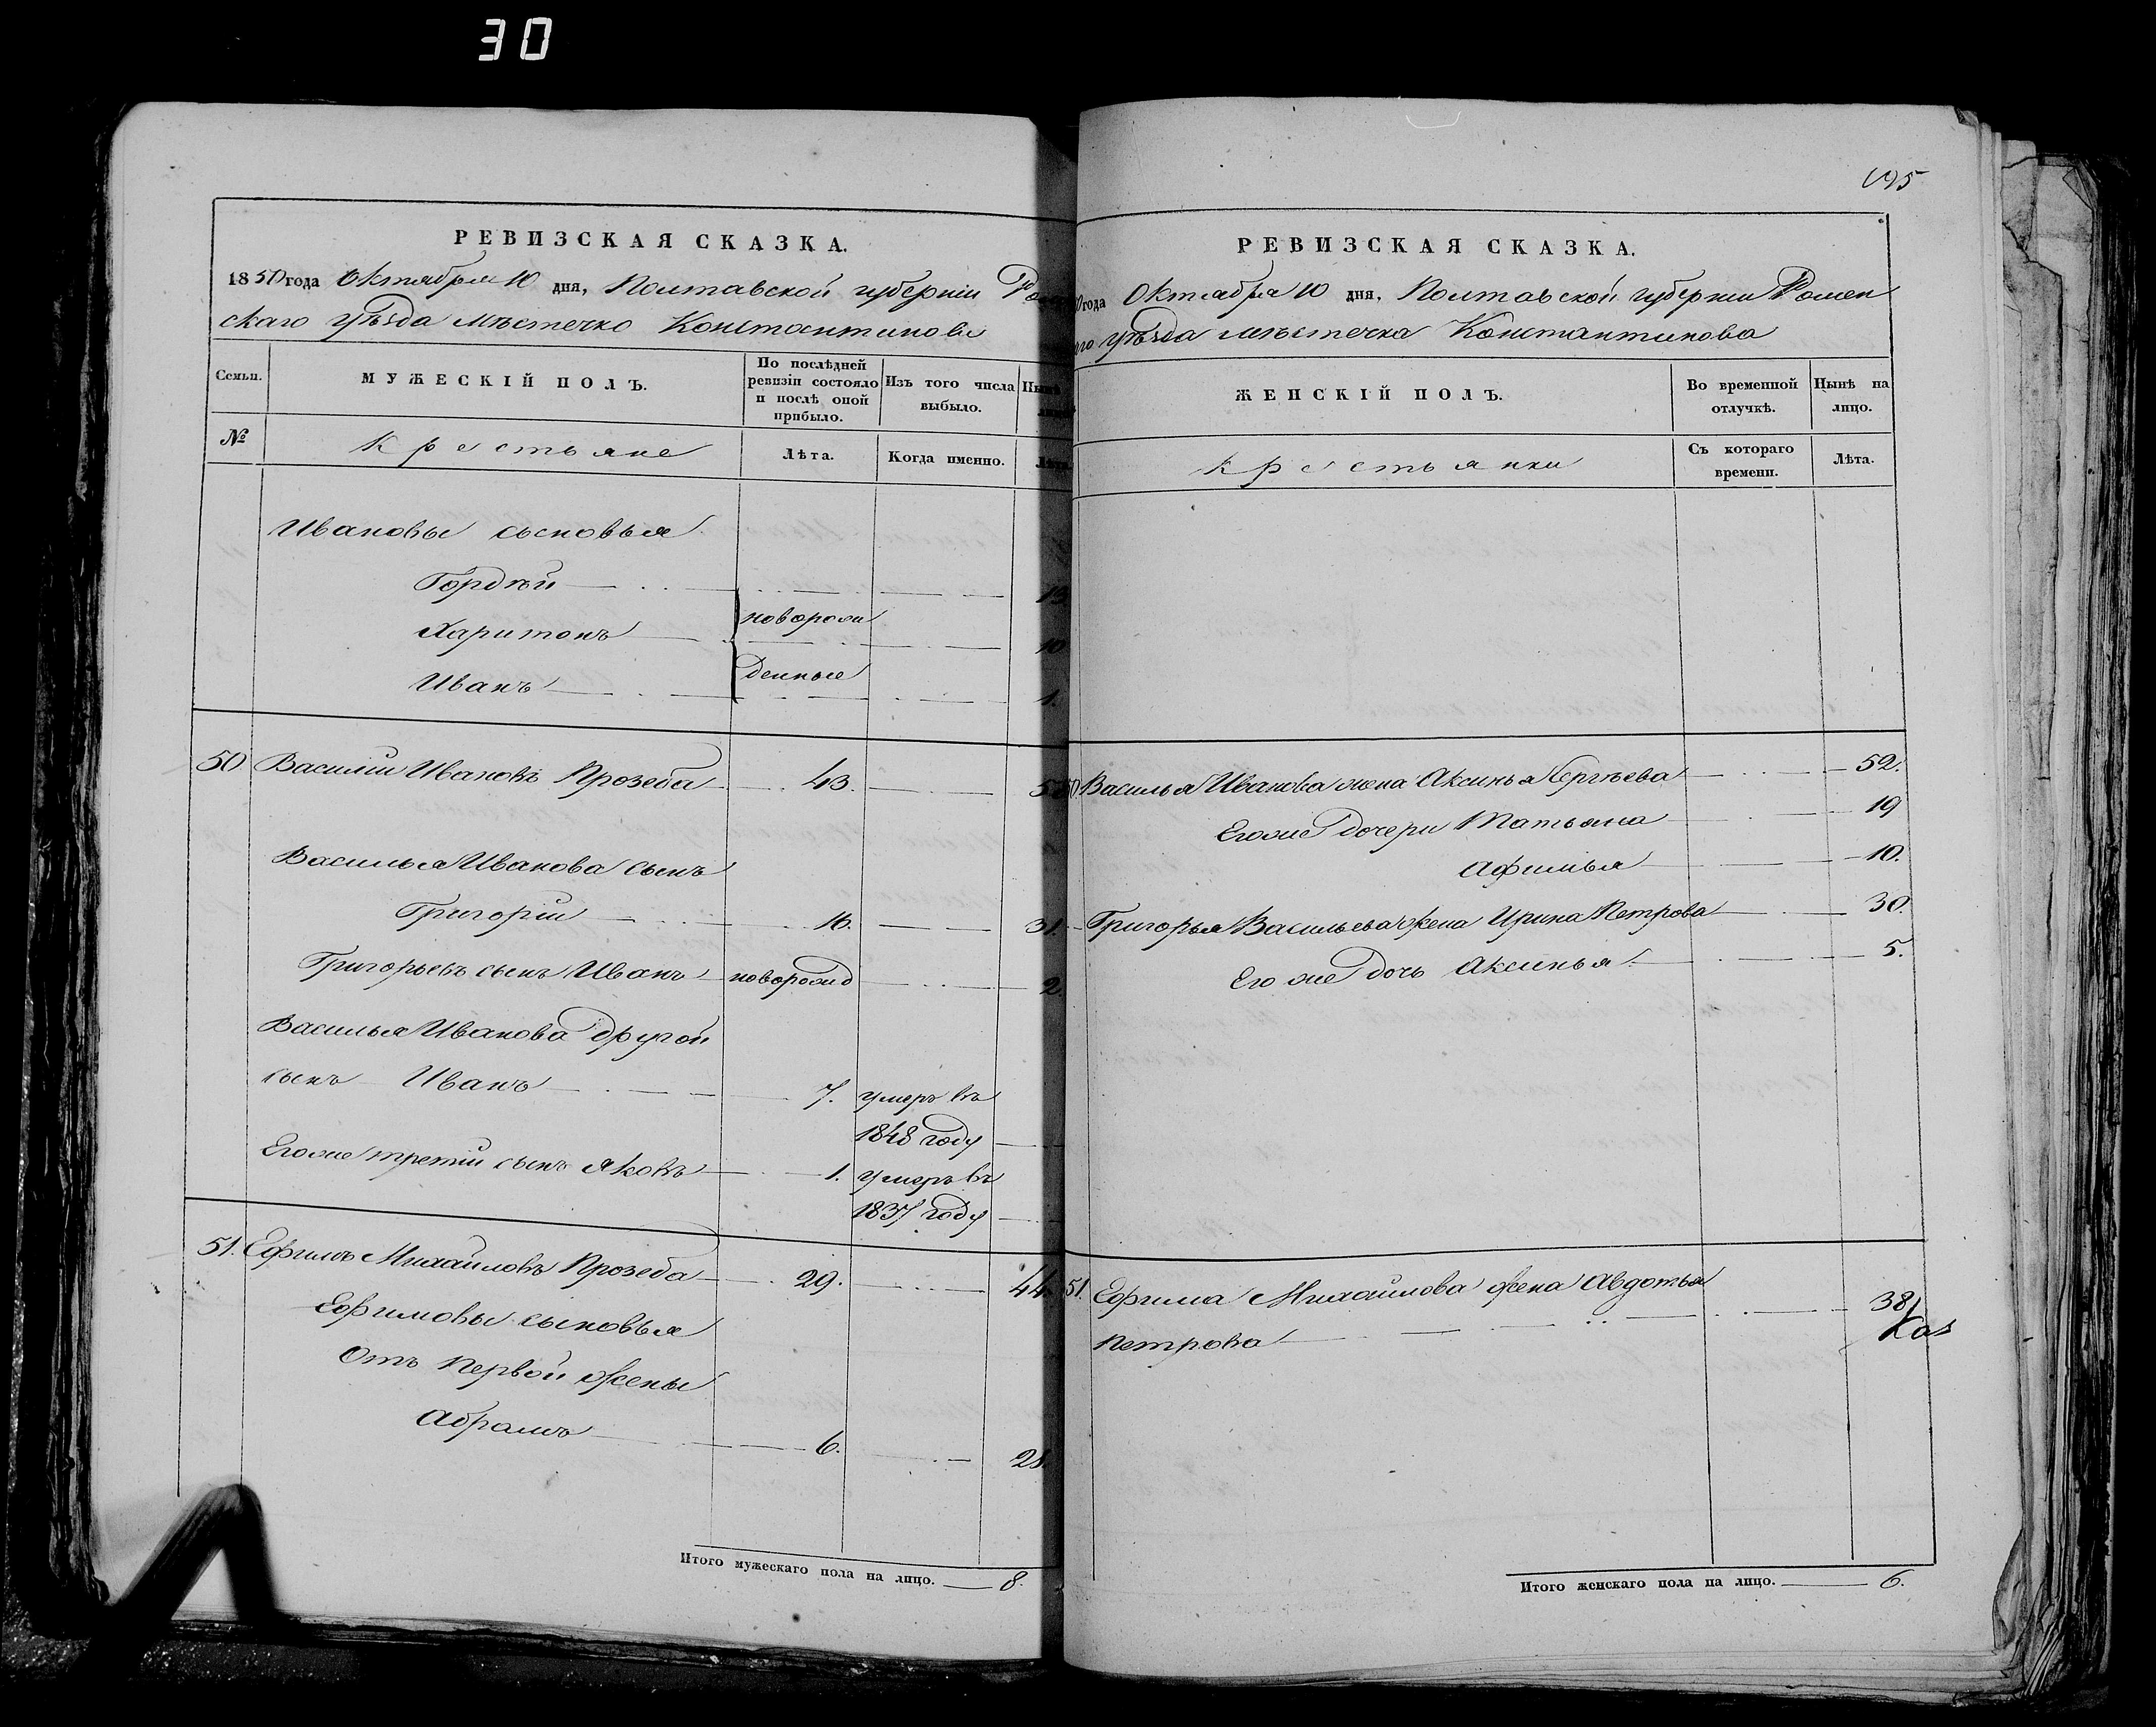 30
РЕВИЗСКАЯ СКАЗКА.
1850 года Октября 10 дня, Полтавской губерніи
скаго уѣзда мѣстечко Константинова
Семьи.
МУЖЕСКІЙ ПОЛЪ.
По послѣдней ревизіи состояло и послѣ оной прибыло.
Изъ того числа выбыло.
№
Крестьяне
Лѣта.
Когда именно.
Лѣта
Ивановы сыновья
Гордѣй
Харитонъ новорож 10
Иванъ денные 1.
50 Василій Ивановъ Прозеба 43.
Василья Иванова сынъ
Григорій 16. 31.
Григорьевъ сынъ Иванъ новорожд 2.
Василья Иванова другой
сынъ Иванъ 7. умеръ въ
1848 году
Егоже третій сынъ Яковъ 1. умеръ въ
1837 году
51. Ефимъ Михайловъ Прозеба 29. 44.
Ефимовы сыновья
Отъ первой жены
Абрамъ 6.
Итого мужескаго пола на лицо. 8.
РЕВИЗСКАЯ СКАЗКА.
года Октября 10 дня, Полтавской губерніи Ромен
уѣзда мѣстечка Константинова
ЖЕНСКІЙ ПОЛЪ.
Во временной отлучкѣ.
Нынѣ на лицо.
Крестьянки
Съ котораго времени.
Лѣта.
Василья Иванова жена Аксинья Сергѣева 52.
Егоже дочери Татьяна 19
Афимья 10.
Григорья Васильева жена Ирина Петрова 30.
Его же дочь Аксинья 5.
51. Ефима Михайлова жена Авдотья
Петрова 38
Итого женскаго пола на лицо. 6.